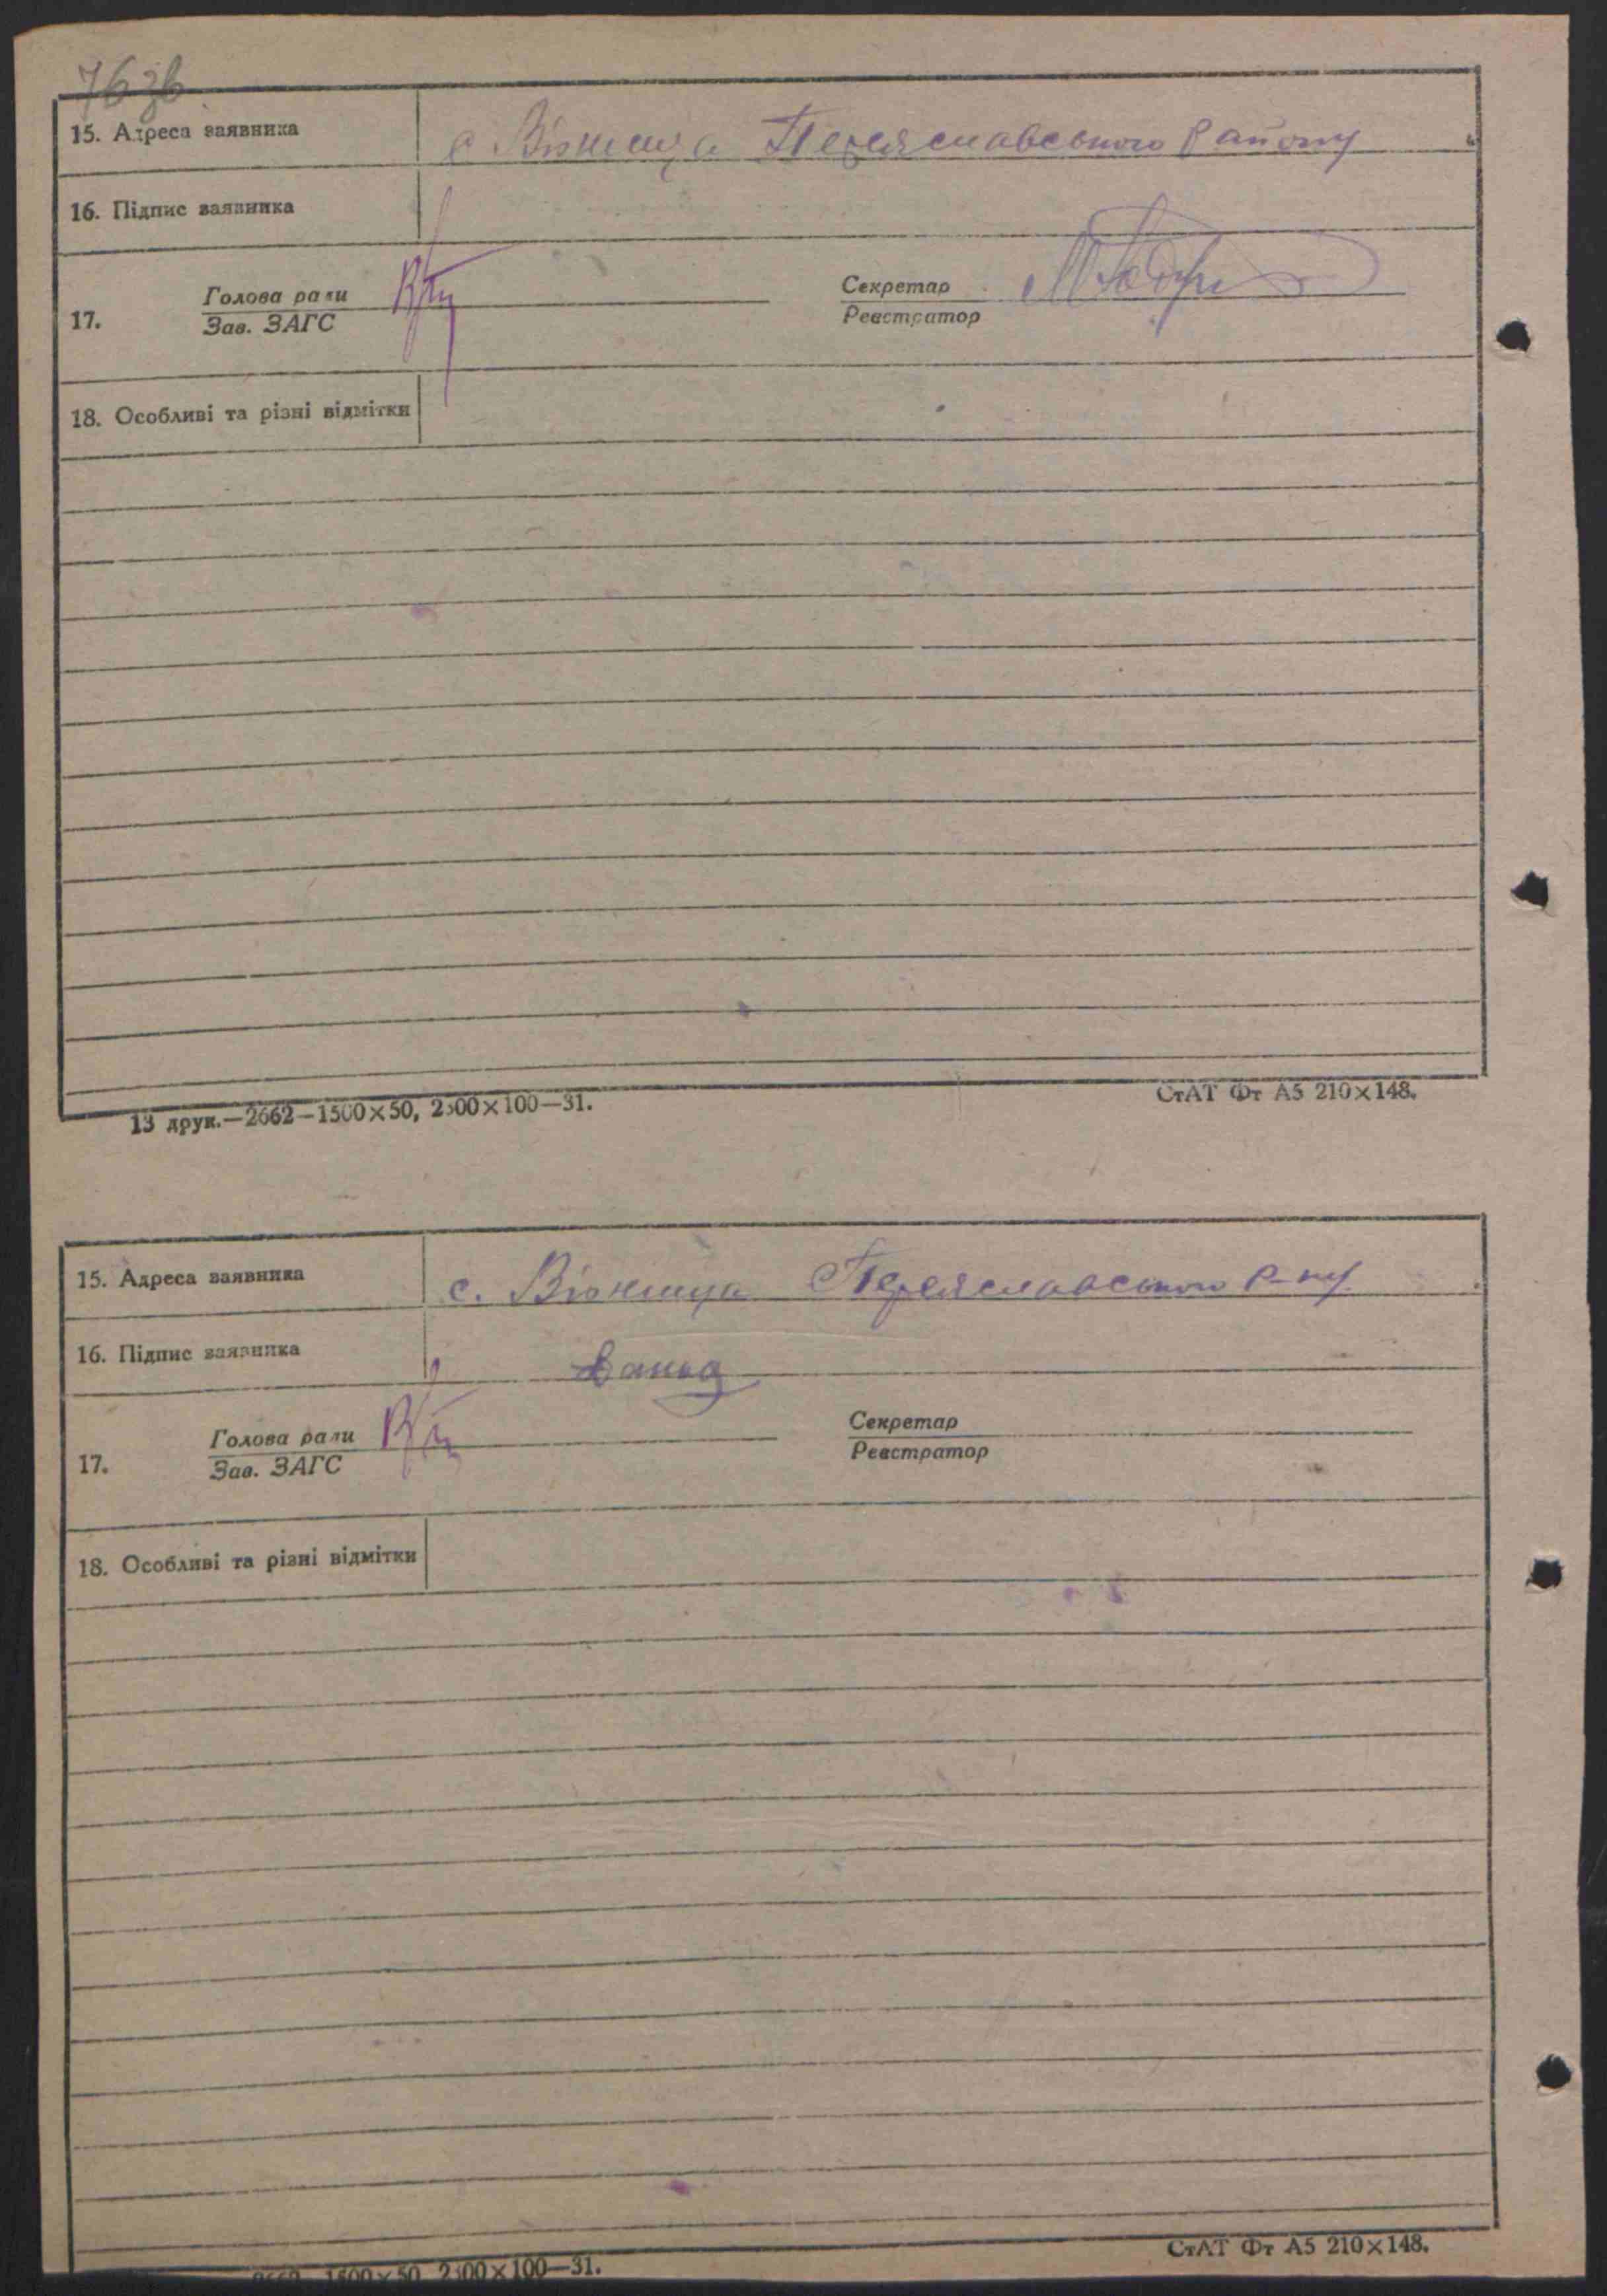 76зв
15. Адреса заявника с Вюнища Переяславського Району
16. Підпис заявника
Голова ради Секретар
17. Зав. ЗАГС Реєстратор
18. Особливі та різні відмітки
13 друк.—2662—1500×50, 2500×100—31. СтАТ Фт А5 210×148.
15. Адреса заявника с. Вюнища Переяславського Р-ну.
16. Підпис заявника
Голова ради Секретар
17. Зав. ЗАГС Реєстратор
18. Особливі та різні відмітки
2662—1500×50, 2500×100—31. СтАТ Фт А5 210×148.